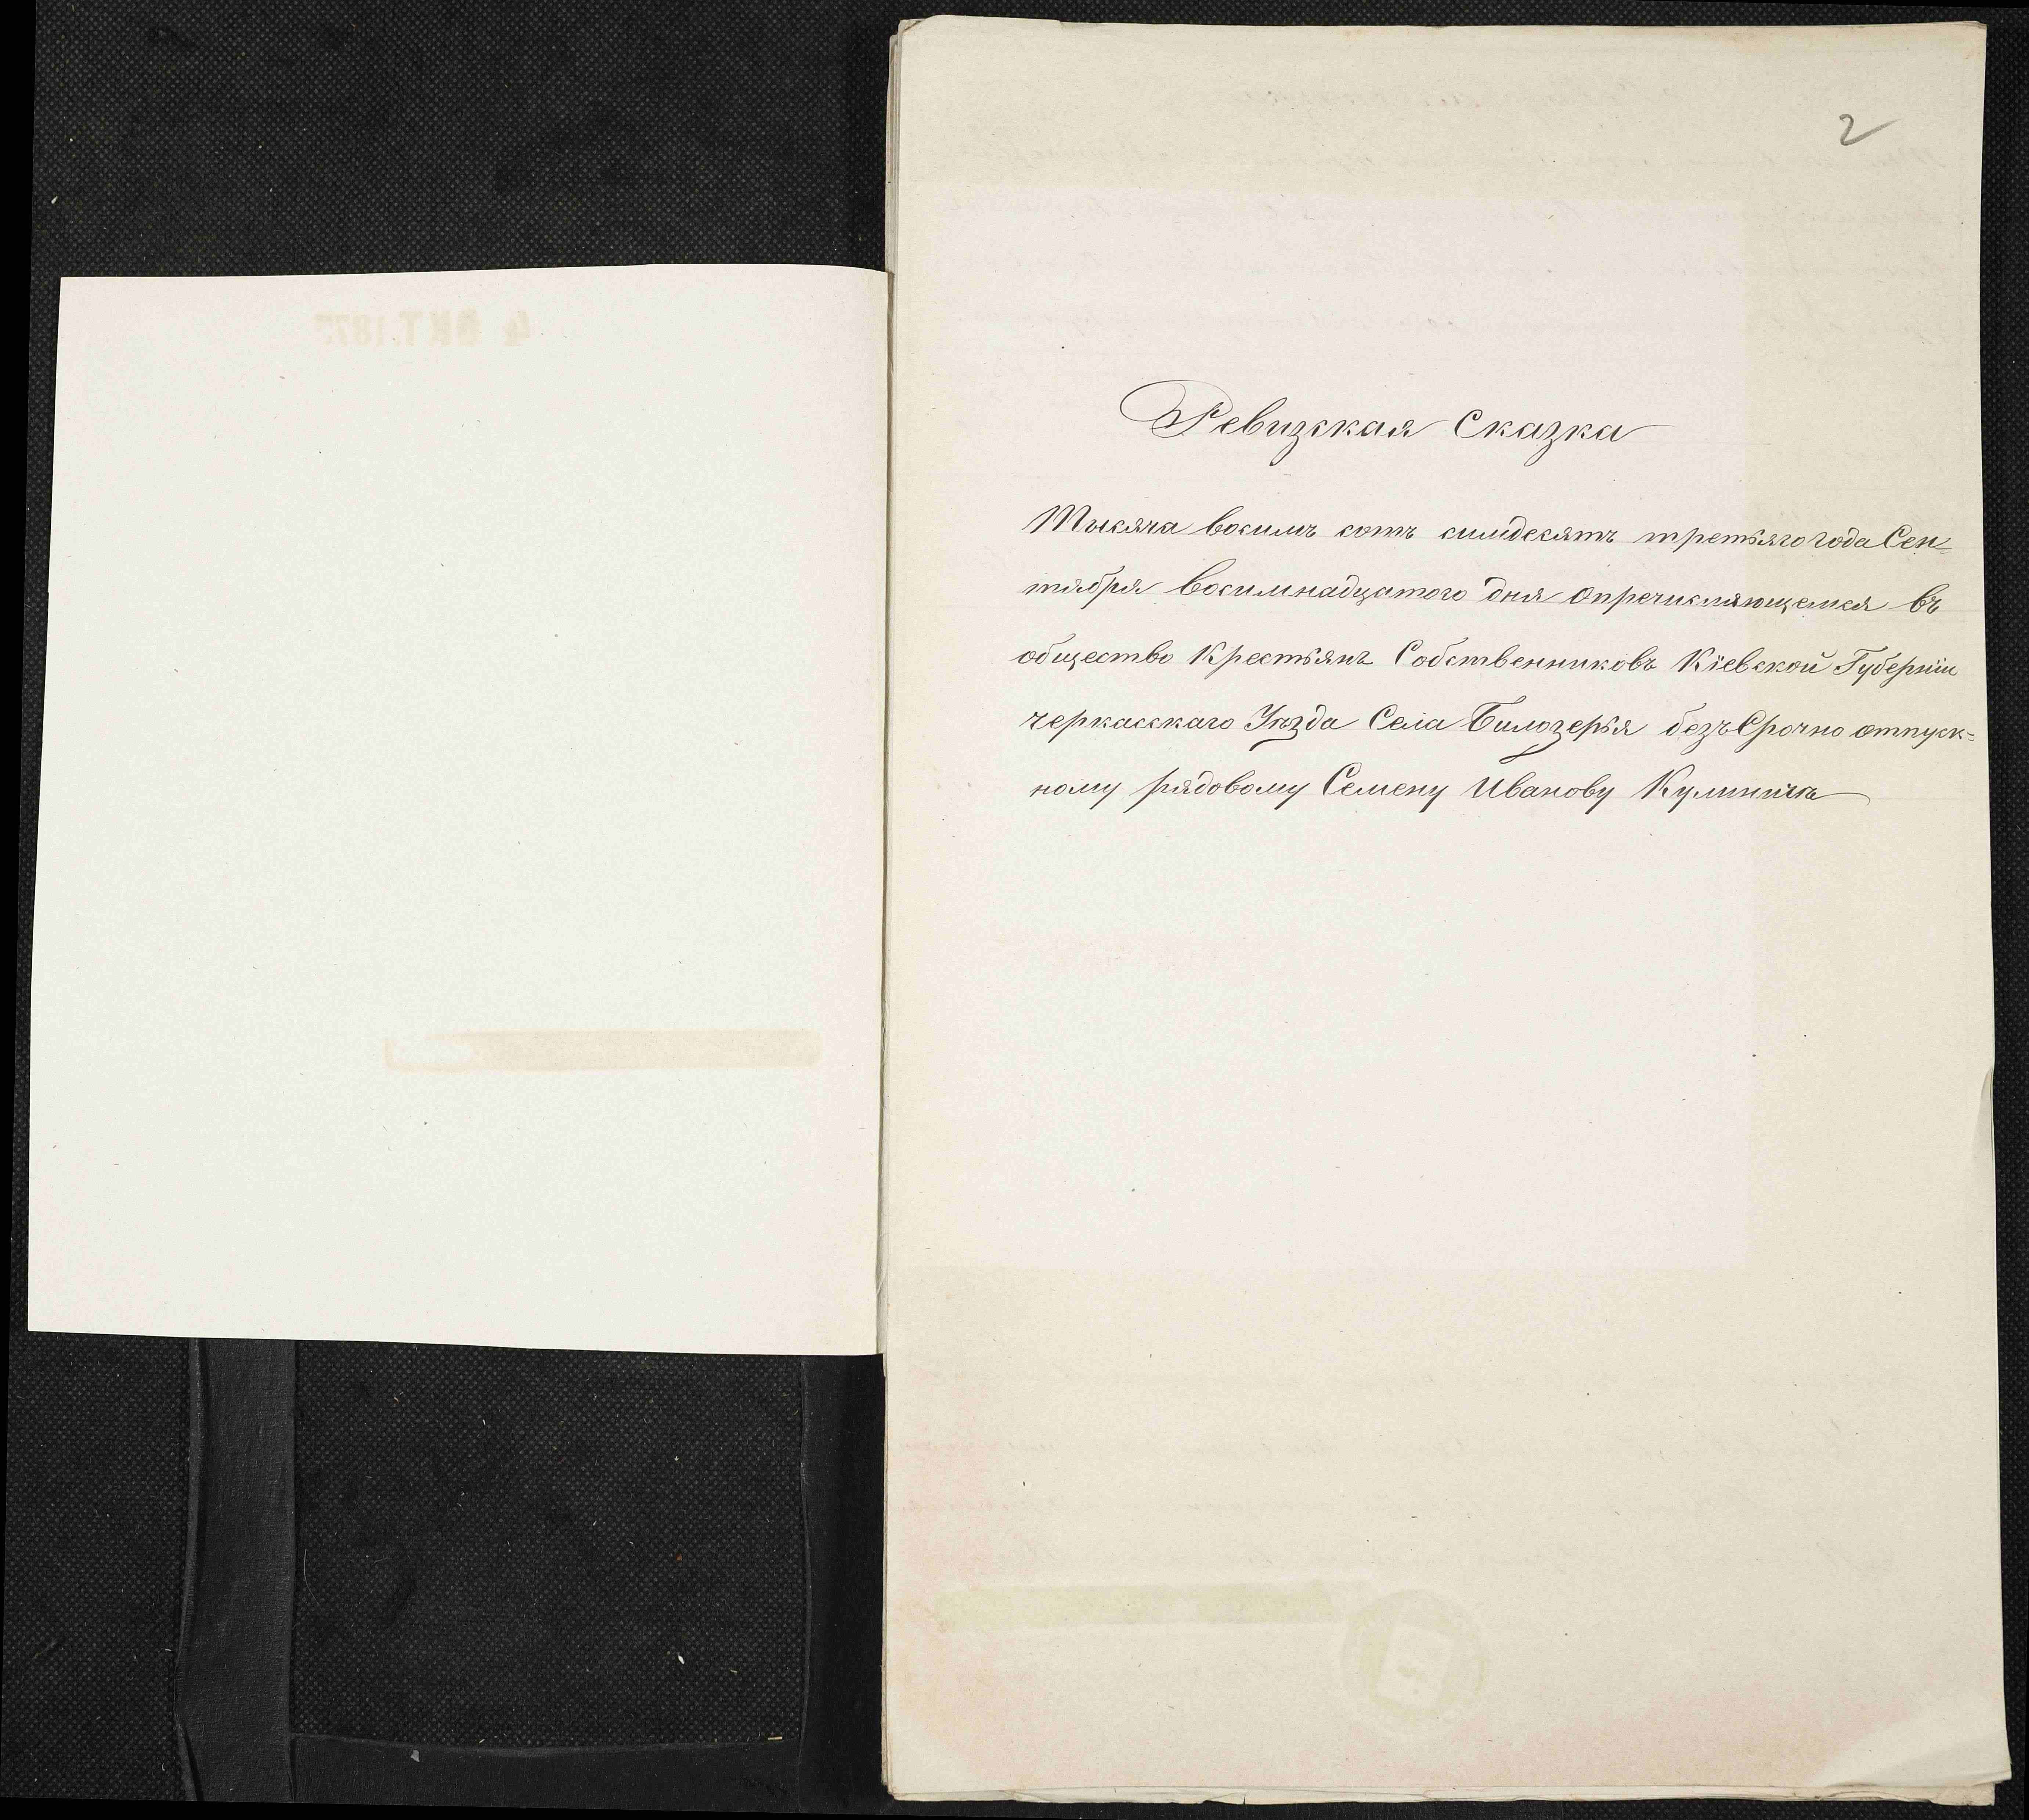 2
Ревизская Сказка
Тысяча восимъ сотъ симдесятъ третьяго года Сен-
тября восимнадцатого дня опречисляющемся въ
общество Крестьянъ Собственниковъ Кіевской Губерніи
черкасскаго Уѣзда Села Билозерья безъ Срочно отпуск=
ному рядовому Семену Иванову Кулиничъ